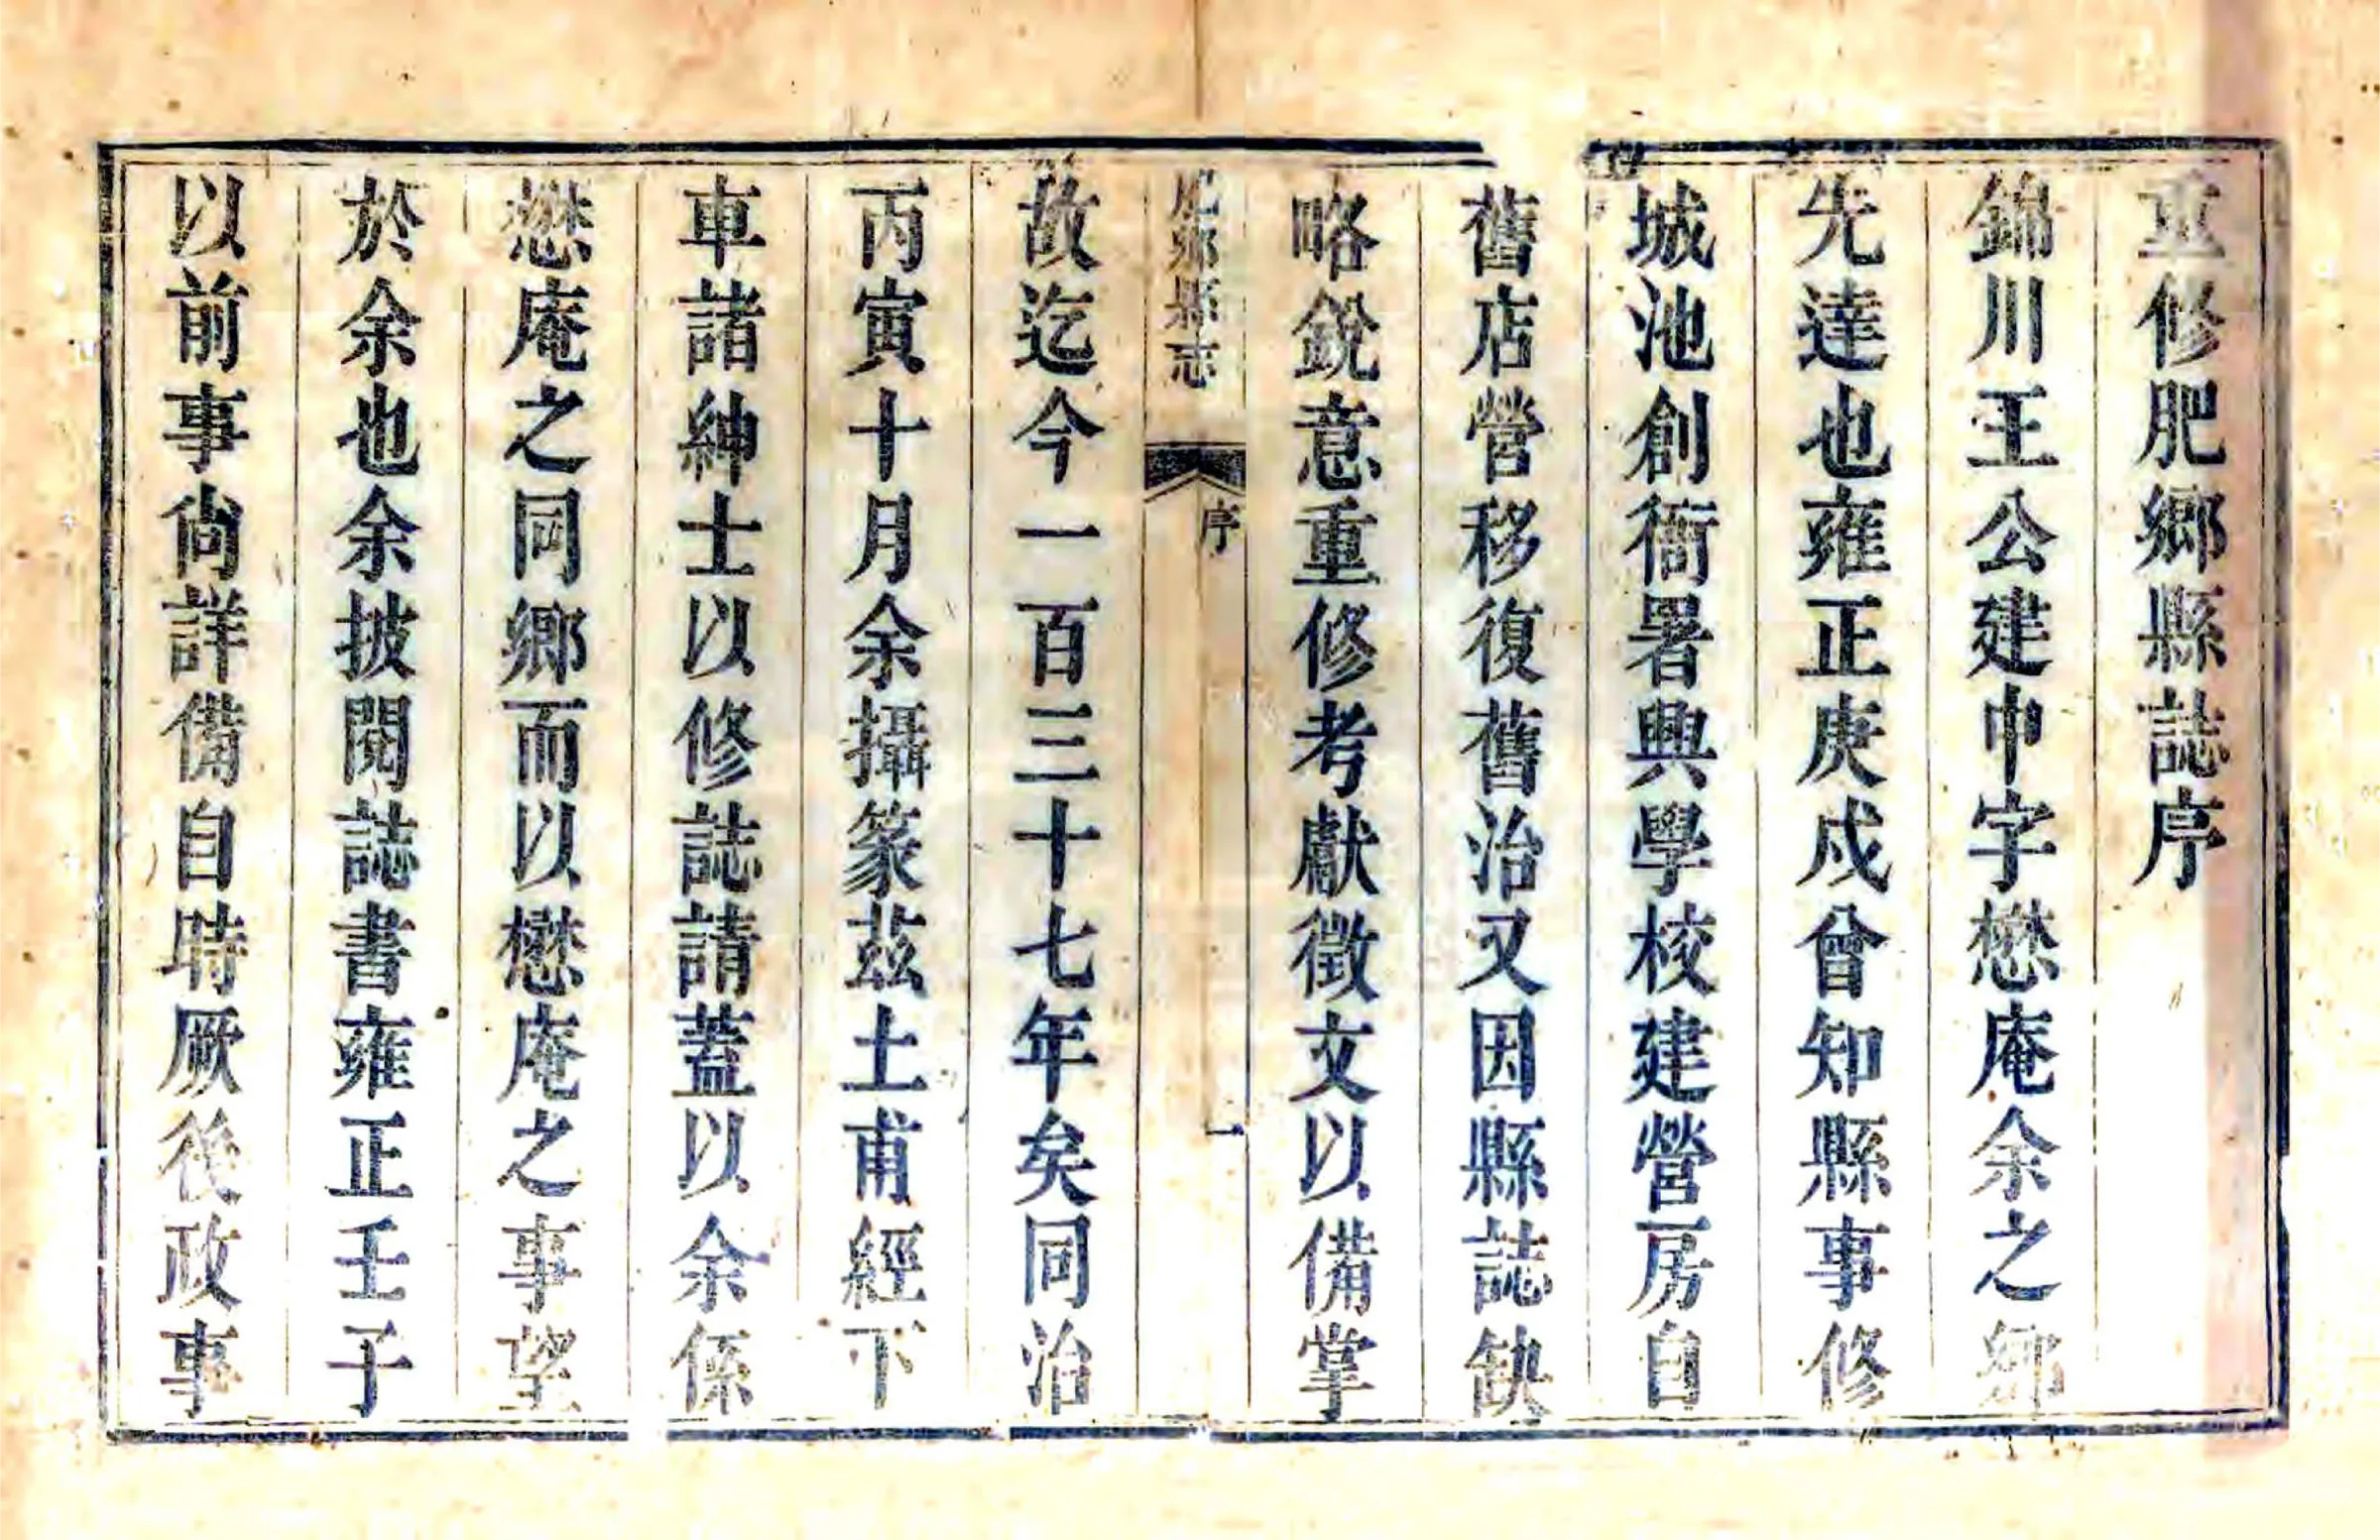 重修肥鄉縣誌序
錦川王公建中字懋庵余之鄉
先達也雍正庚戍曾知縣事修
城池創衙署興學校建營房自
舊店營移復舊治又因縣誌缺
略銳意重修考獻徵文以備掌
肥鄉縣志
序
一
故迄今一百三十七年矣同治
丙寅十月余攝篆茲土甫經下
車諸紳士以修誌請蓋以余係
懋庵之同鄉而以懋庵之事望
於余也余披閱誌書雍正壬子
以前事尚詳備自時厥後政事